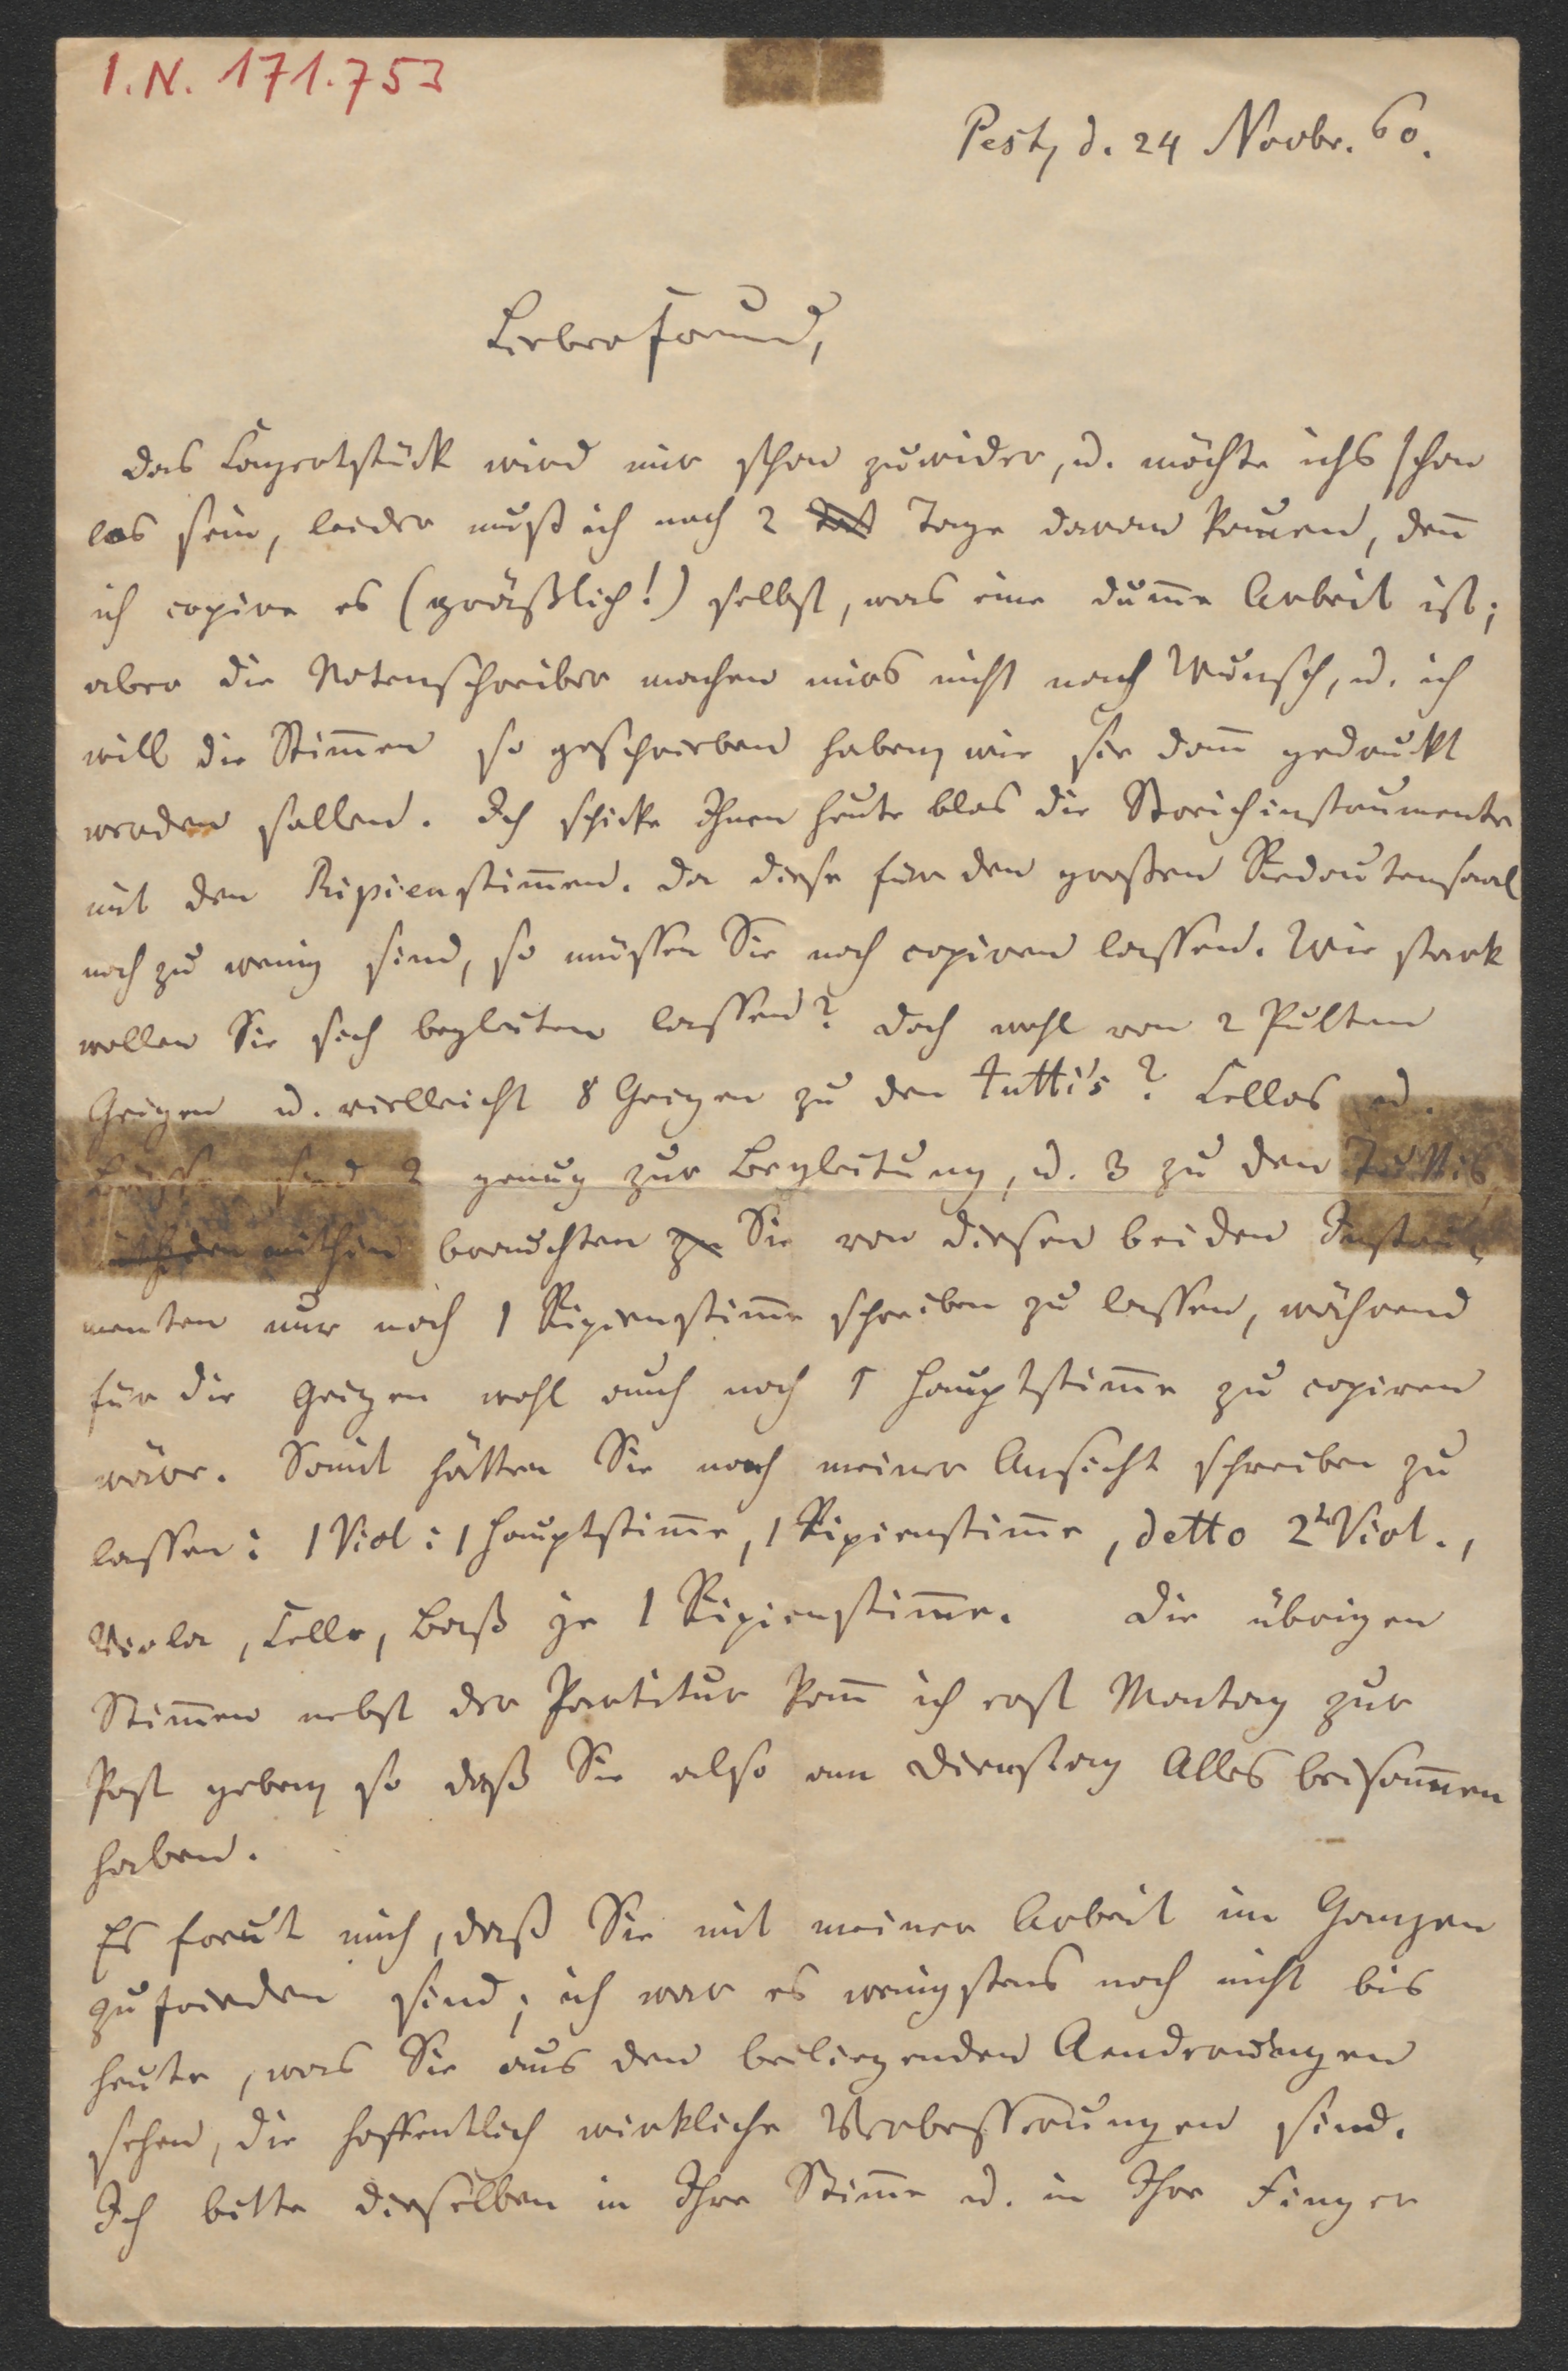 I.N. 171.753
Pest, d. 24 Novbr. 60.
Lieber Freund,
das Conzertstück wird mir schon zuwider, u. möchte ichs schon
los sein, leider muß ich noch 2 Tage daran kauen, den̄
ich copire es (gräßlich!) selbst, was eine dum̄e Arbeit ist;
aber die Notenschreiber machen mirs nicht nach Wunsch, u. ich
will die Stim̄en so geschrieben haben, wie sie dan̄ gedruckt
werden sollen. Ich schicke Ihnen heute blos die Streichinstrumente
mit den Ripienstim̄en. Da diese für den großen Redoutensaal
noch zu wenig sind, so müssen Sie noch copiren lassen. Wie stark
wollen Sie sich begleiten lassen? Doch wohl von 2 Pulten
Geigen u. vielleicht 8 Geigen zu den tutti's? Cellos u.
Bässe sind 2 genug zur Begleitung, u. 3 zu den Tuttis,
mithin brauchten Sie von diesen beiden Instru-
menten nur noch 1 Ripienstim̄e schreiben zu lassen, während
für die Geigen wohl auch noch 1 Hauptstim̄e zu copiren
wäre. Somit hätten Sie nach meiner Ansicht schreiben zu
lassen: 1 Viol: 1 Hauptstim̄e, 1 Ripienstim̄e, detto 2te Viol.,
Viola, Cello, Baß je 1 Ripienstim̄e. Die übrigen
Stim̄en nebst der Partitur kan̄ ich erst Montag zur
Post geben, so daß Sie also am Dienstag Alles beisam̄en
haben.
Es freut mich, daß Sie mit meiner Arbeit im Ganzen
zufrieden sind; ich war es wenigstens noch nicht bis
heute, was Sie aus den beiliegenden Aenderungen
sehen, die hoffentlich wirkliche Verbesserungen sind.
Ich bitte dieselben in Ihre Stim̄e u. in Ihre Finger